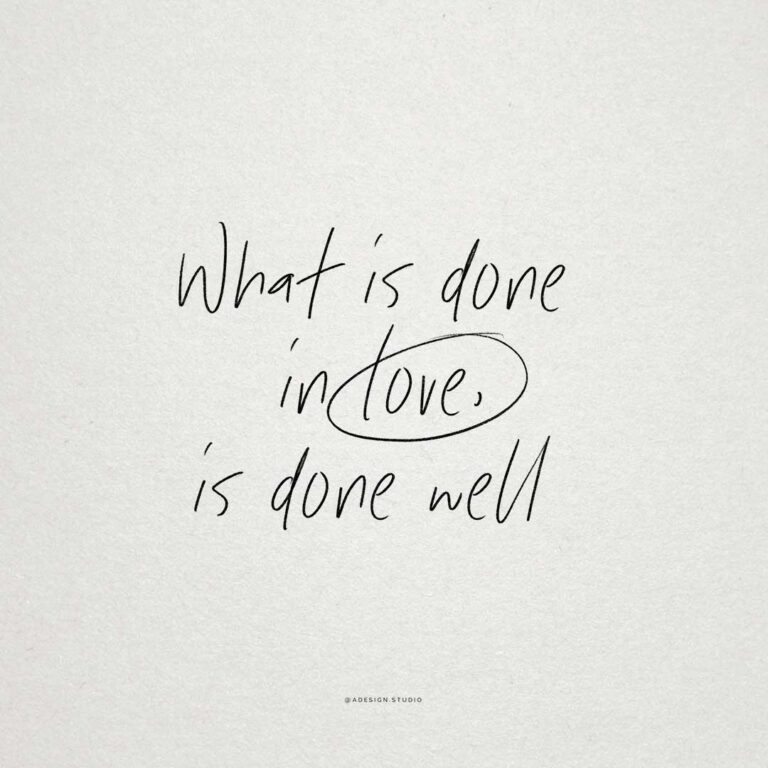 What is done
in love,
is done well
@ADESIGN.STUDIO